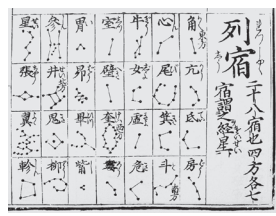 列宿
二十八宿也四方各七
宿謂之經星
角
東方
亢
氐
房
心
尾
箕
斗
牛
女
虚
危
室
壁
奎
婁
胃
昴
畢
觜
参
井
鬼
柳
星
張
翼
軫